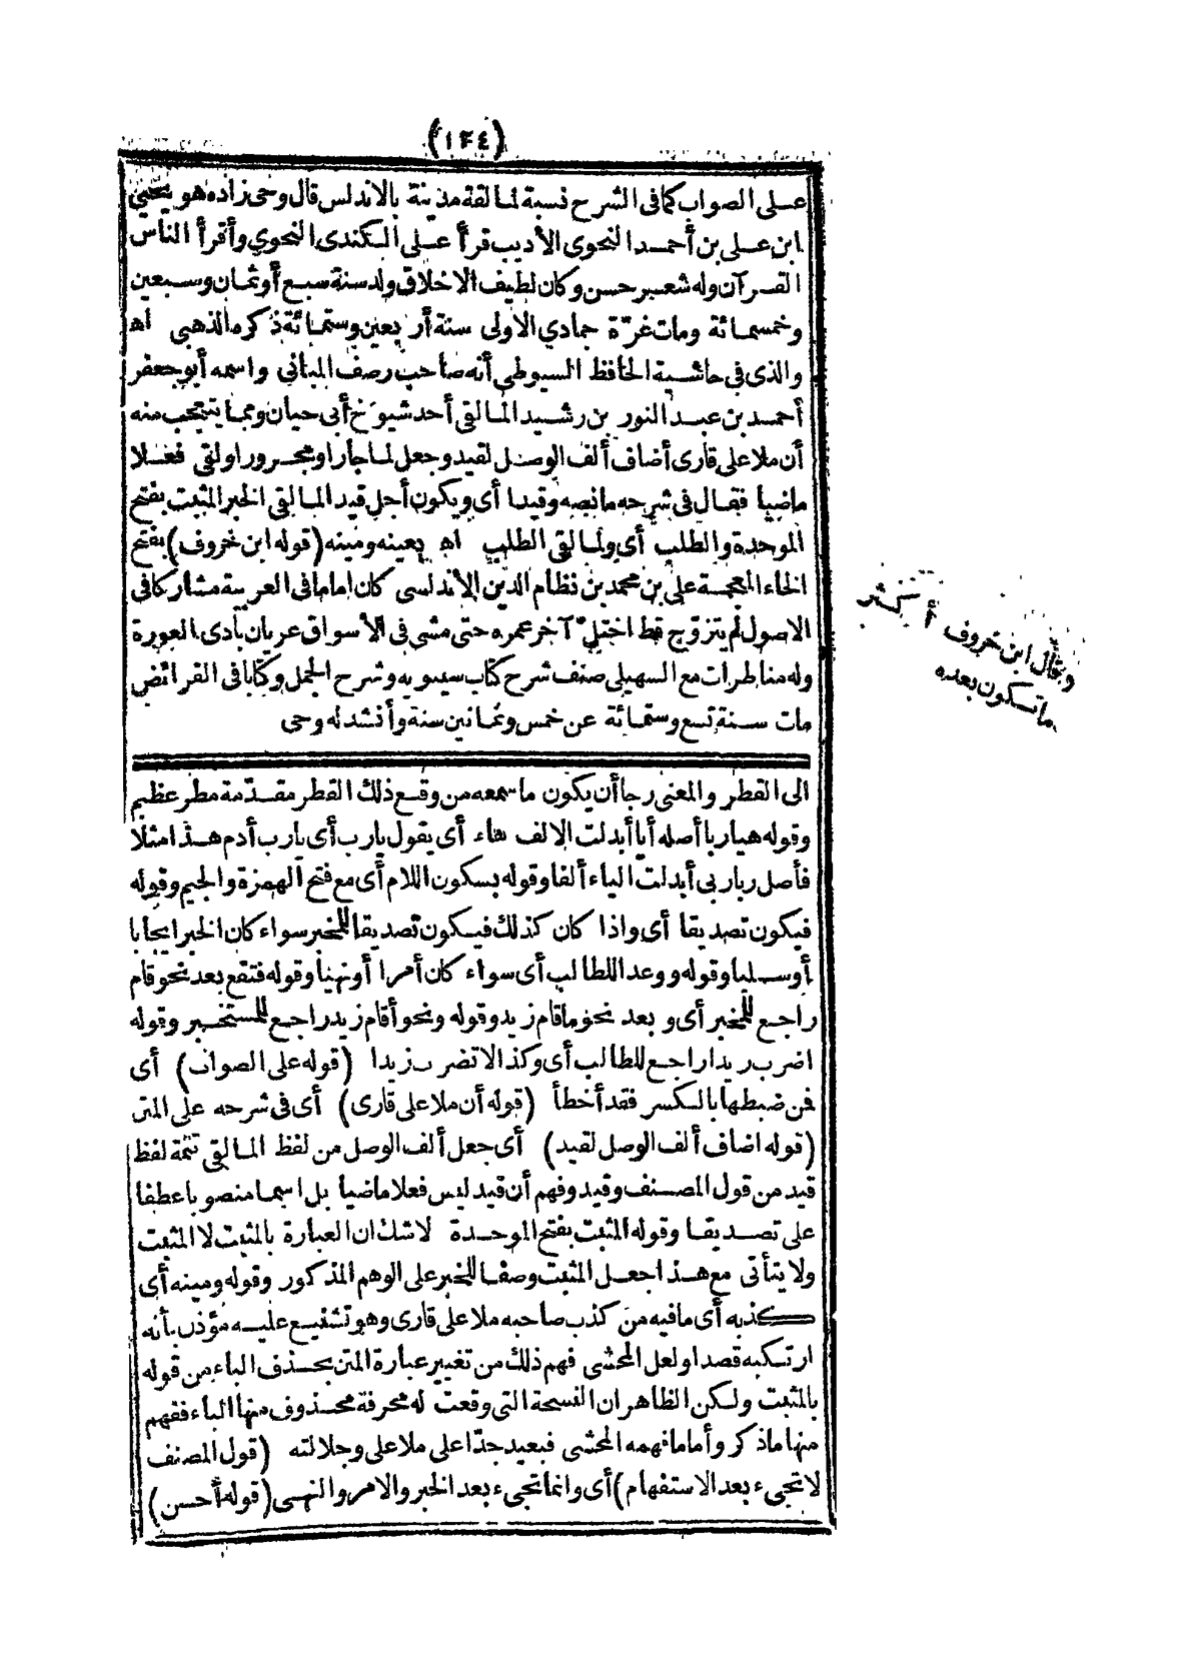 (١٣٤)
على الصواب كما فى الشرح نسبة لمالقة مدينة بالاندلس قال وحى زاده هو يحيى
ابن على بن أحمد النحوى الأديب قرأ على الكندى النحوي وأقرأ الناس
القرآن وله شعر حسن وكان لطيف الاخلاق ولد سنة سبع أو ثمان وسبعين
وخمسمائة ومات غرّة جمادي الاولى سنة أربعين وستمائة ذكره الذهبى اه
والذى فى حاشية الحافظ السيوطى أنه صاحب رصف المبانى واسمه أبو جعفر
أحمد بن عبد النور بن رشيد المالقى أحد شيوخ أبى حيان ومما يتعجب منه
أن ملا على قارى أضاف ألف الوصل لقيد وجعل لما جارا ومجرورا ولقى فعلا
ماضيا فقال فى شرحه مانصه وقيدا أى ويكون أجل قيد المالقى الخبر المثبت بفتح
الموحدة والطلب أى ولمالقى الطلب اه بعينه ومينه (قوله ابن خروف) بفتح
الخاء المعجمة على بن محمد بن نظام الدين الأندلسى كان اماما فى العربية مشاركا فى
الاصول لم يتزوج قط اختل آخر عمره حتى مشى فى الأسواق عريان بادى العورة
وله مناظرات مع السهيلى صنف شرح كتاب سيبويه وشرح الجمل وكتابا فى الفرائض
مات سنة تسع وستمائة عن خمس وثمانين سنة وأنشد له وحى
وقال ابن خروف أكثر
ما تكون بعده
الى القطر والمعنى رجا أن يكون ما سمعه من وقع ذلك القطر مقدّمة مطر عظيم
وقوله هيا ربا أصله أيا أبدلت الالف هاء أى يقول يارب أى يارب أدم هذا مثلا
فأصل ربا ربى أبدلت الياء ألفا وقوله بسكون اللام أى مع فتح الهمزة والجيم وقوله
فيكون تصديقا أى واذا كان كذلك فيكون تصديقا للمخبر سواء كان الخبر ايجابا
أوسلبا وقوله ووعدا للطالب أى سواء كان أمرا أو نهيا وقوله فتقع بعد نحو قام
راجع للمخبر أى وبعد نحو ما قام زيد وقوله ونحو أقام زيد راجع للمستخبر وقوله
اضرب زيدا راجع للطالب أى وكذا لا تضرب زيدا (قوله على الصواب) أى
فمن ضبطها بالكسر فقد أخطأ (قوله أن ملا على قارى) أى فى شرحه على المتن
(قوله اضاف ألف الوصل لقيد) أى جعل ألف الوصل من لفظ المالقى تتمة لفظ
قيد من قول المصنف وقيد وفهم أن قيد ليس فعلا ماضيا بل اسما منصوبا عطفا
على تصديقا وقوله المثبت بفتح الموحدة لاشك ان العبارة بالمثبت لا المثبت
ولا يتأتى مع هذا جعل المثبت وصفا للخبر على الوهم المذكور وقوله ومينه أى
كذبه أى مافيه من كذب صاحبه ملا على قارى وهو تشنيع عليه مؤذن بأنه
ارتكبه قصدا ولعل المحشى فهم ذلك من تغيير عبارة المتن بحذف الباء من قوله
بالمثبت ولكن الظاهر ان النسخة التى وقعت له محرفة محذوف منها الباء ففهم
منها ماذكر وأما مافهمه المحشى فبعيد جدّا على ملا على وجلالته (قول المصنف
لا تجىء بعد الاستفهام) أى وانما تجىء بعد الخبر والامر والنهى (قوله أحسن)